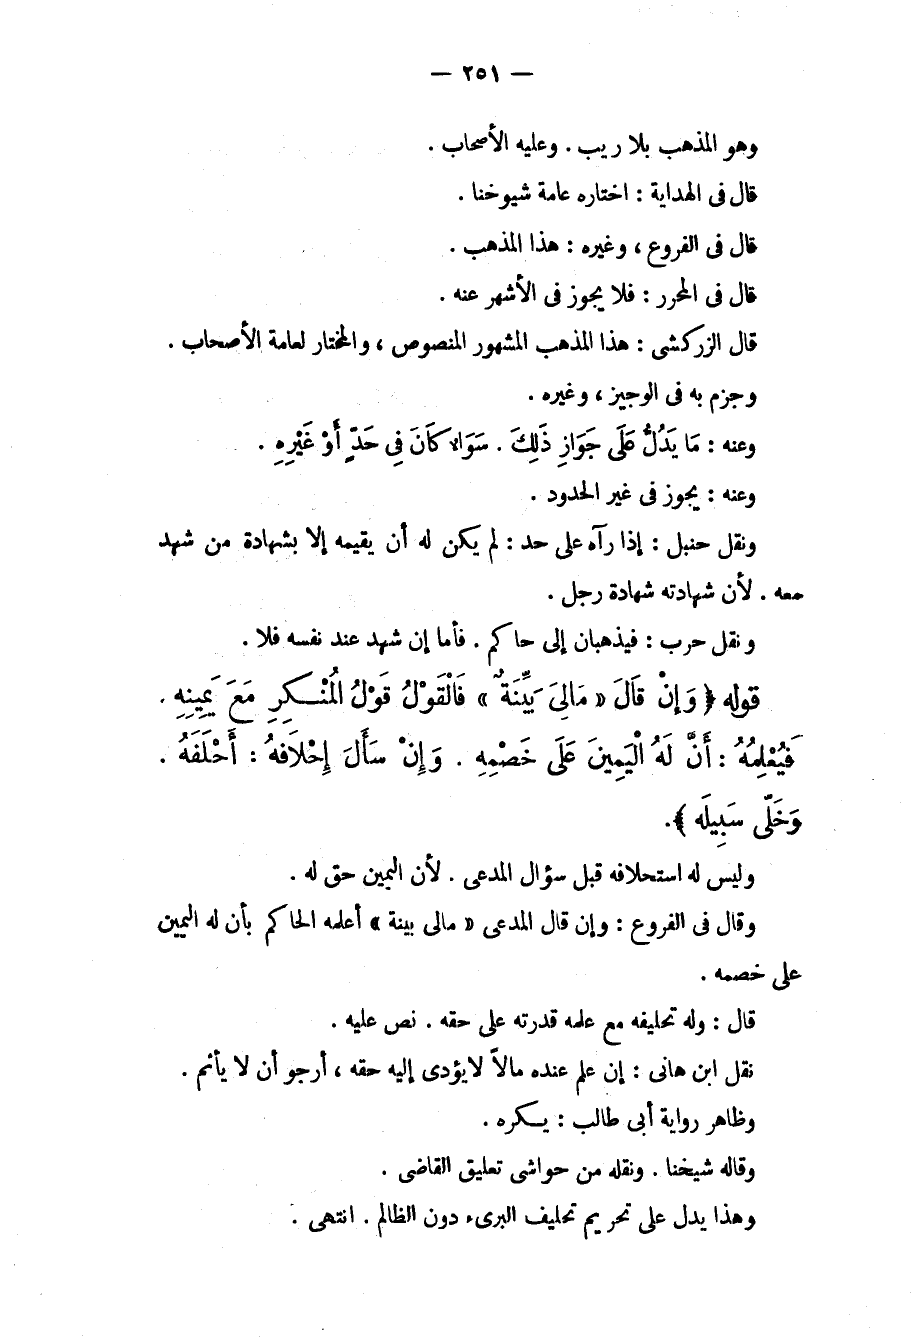 — ٢٥١ —
وهو المذهب بلا ريب . وعليه الأصحاب .
قال فى الهداية : اختاره عامة شيوخنا .
قال فى الفروع ، وغيره : هذا المذهب .
قال فى المحرر : فلا يجوز فى الأشهر عنه .
قال الزركشى : هذا المذهب المشهور المنصوص ، والمختار لعامة الأصحاب .
وجزم به فى الوجيز ، وغيره .
وعنه : مَا يَدُلُّ عَلَى جَوَازِ ذَلِكَ . سَوَاءٌ كَانَ فِى حَدٍّ أَوْ غَيْرِهِ .
وعنه : يجوز فى غير الحدود .
ونقل حنبل : إذا رآه على حد : لم يكن له أن يقيمه إلا بشهادة من شهد
معه . لأن شهادته شهادة رجل .
ونقل حرب : فيذهبان إلى حاكم . فأما إن شهد عند نفسه فلا .
قوله ﴿ وَإِنْ قَالَ « مَالِىَ بَيِّنَةٌ » فَالْقَوْلُ قَوْلُ الْمُنْكِرِ مَعَ يَمِينِهِ .
فَيُعْلِمُهُ : أَنَّ لَهُ الْيَمِينَ عَلَى خَصْمِهِ . وَإِنْ سَأَلَ إِحْلَافَهُ : أَحْلَفَهُ .
وَخَلَّى سَبِيلَه ﴾.
وليس له استحلافه قبل سؤال المدعى . لأن اليمين حق له .
وقال فى الفروع : وإن قال المدعى « مالى بينة » أعلمه الحاكم بأن له اليمين
على خصمه .
قال : وله تحليفه مع علمه قدرته على حقه . نص عليه .
نقل ابن هانى : إن علم عنده مالاً لا يؤدى إليه حقه ، أرجو أن لا يأثم .
وظاهر رواية أبى طالب : يكره .
وقاله شيخنا . ونقله من حواشى تعليق القاضى .
وهذا يدل على تحريم تحليف البرىء دون الظالم . انتهى .